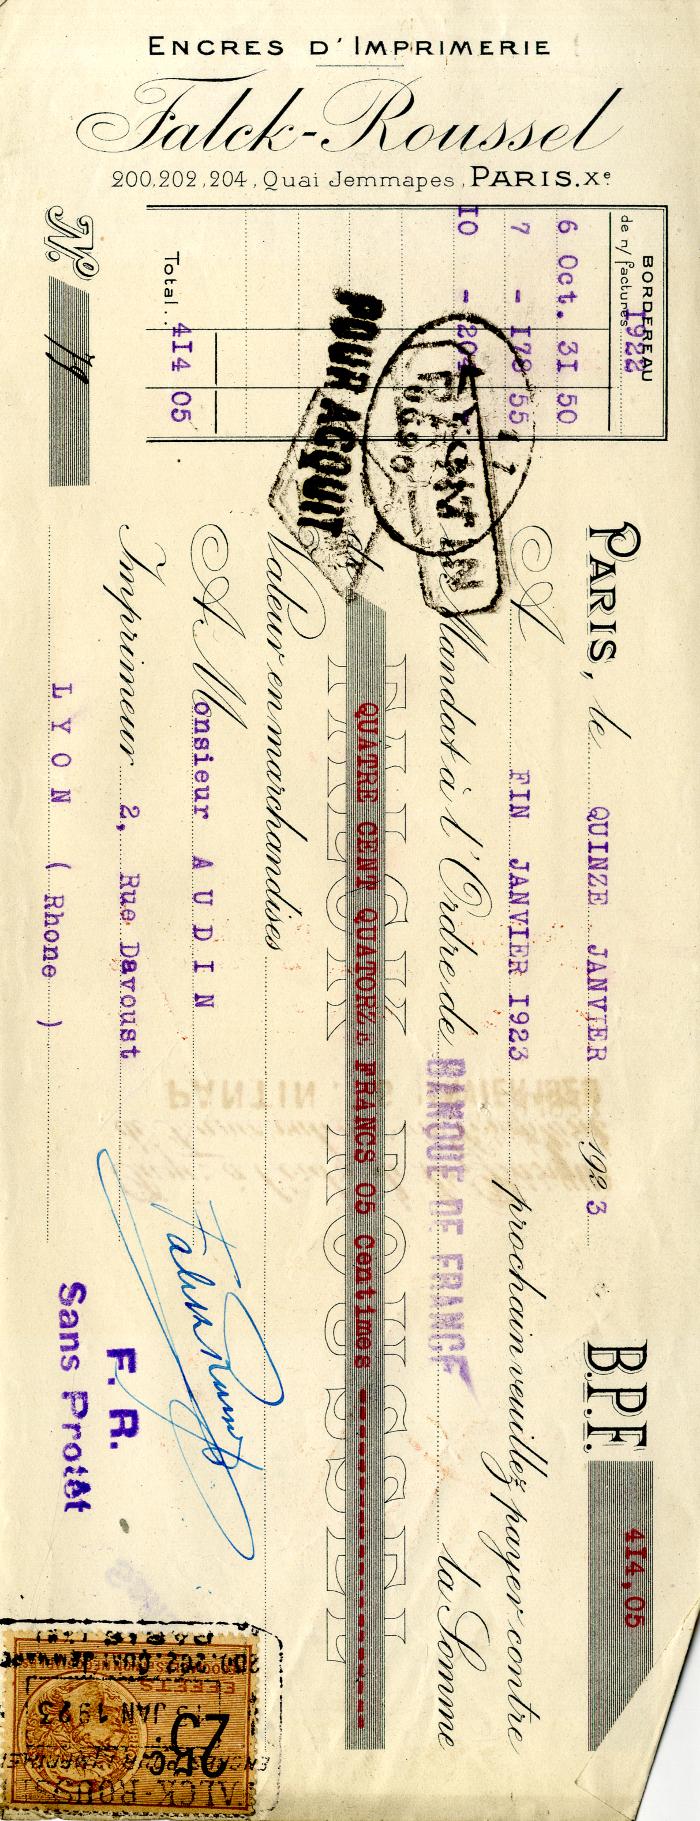 ENCRES D'IMPRIMERIE
Falck-Roussel
200,202,204, Quai Jemmapes, PARIS.Xe
BORDEREAU
de n/ factures
1922
6 Oct. 31 50
7 - 178 55
10 - 204
Total.. 414 05
No. 79
POUR ACQUIT
LYON
PARIS, le QUINZE JANVIER 1923
B.P.F. 414,05
A FIN JANVIER 1923 prochain veuillez payer contre
Mandat à l'Ordre de BANQUE DE FRANCE la Somme
FALCK ROUSSEL
QUATRE CENT QUATORZE FRANCS 05 centimes
Valeur en marchandises
A Monsieur AUDIN
Imprimeur 2, Rue Davoust
LYON ( Rhone )
Falck Roussel
F. R.
Sans Protêt
PANTIN
EFFETS
JAN 1923
25